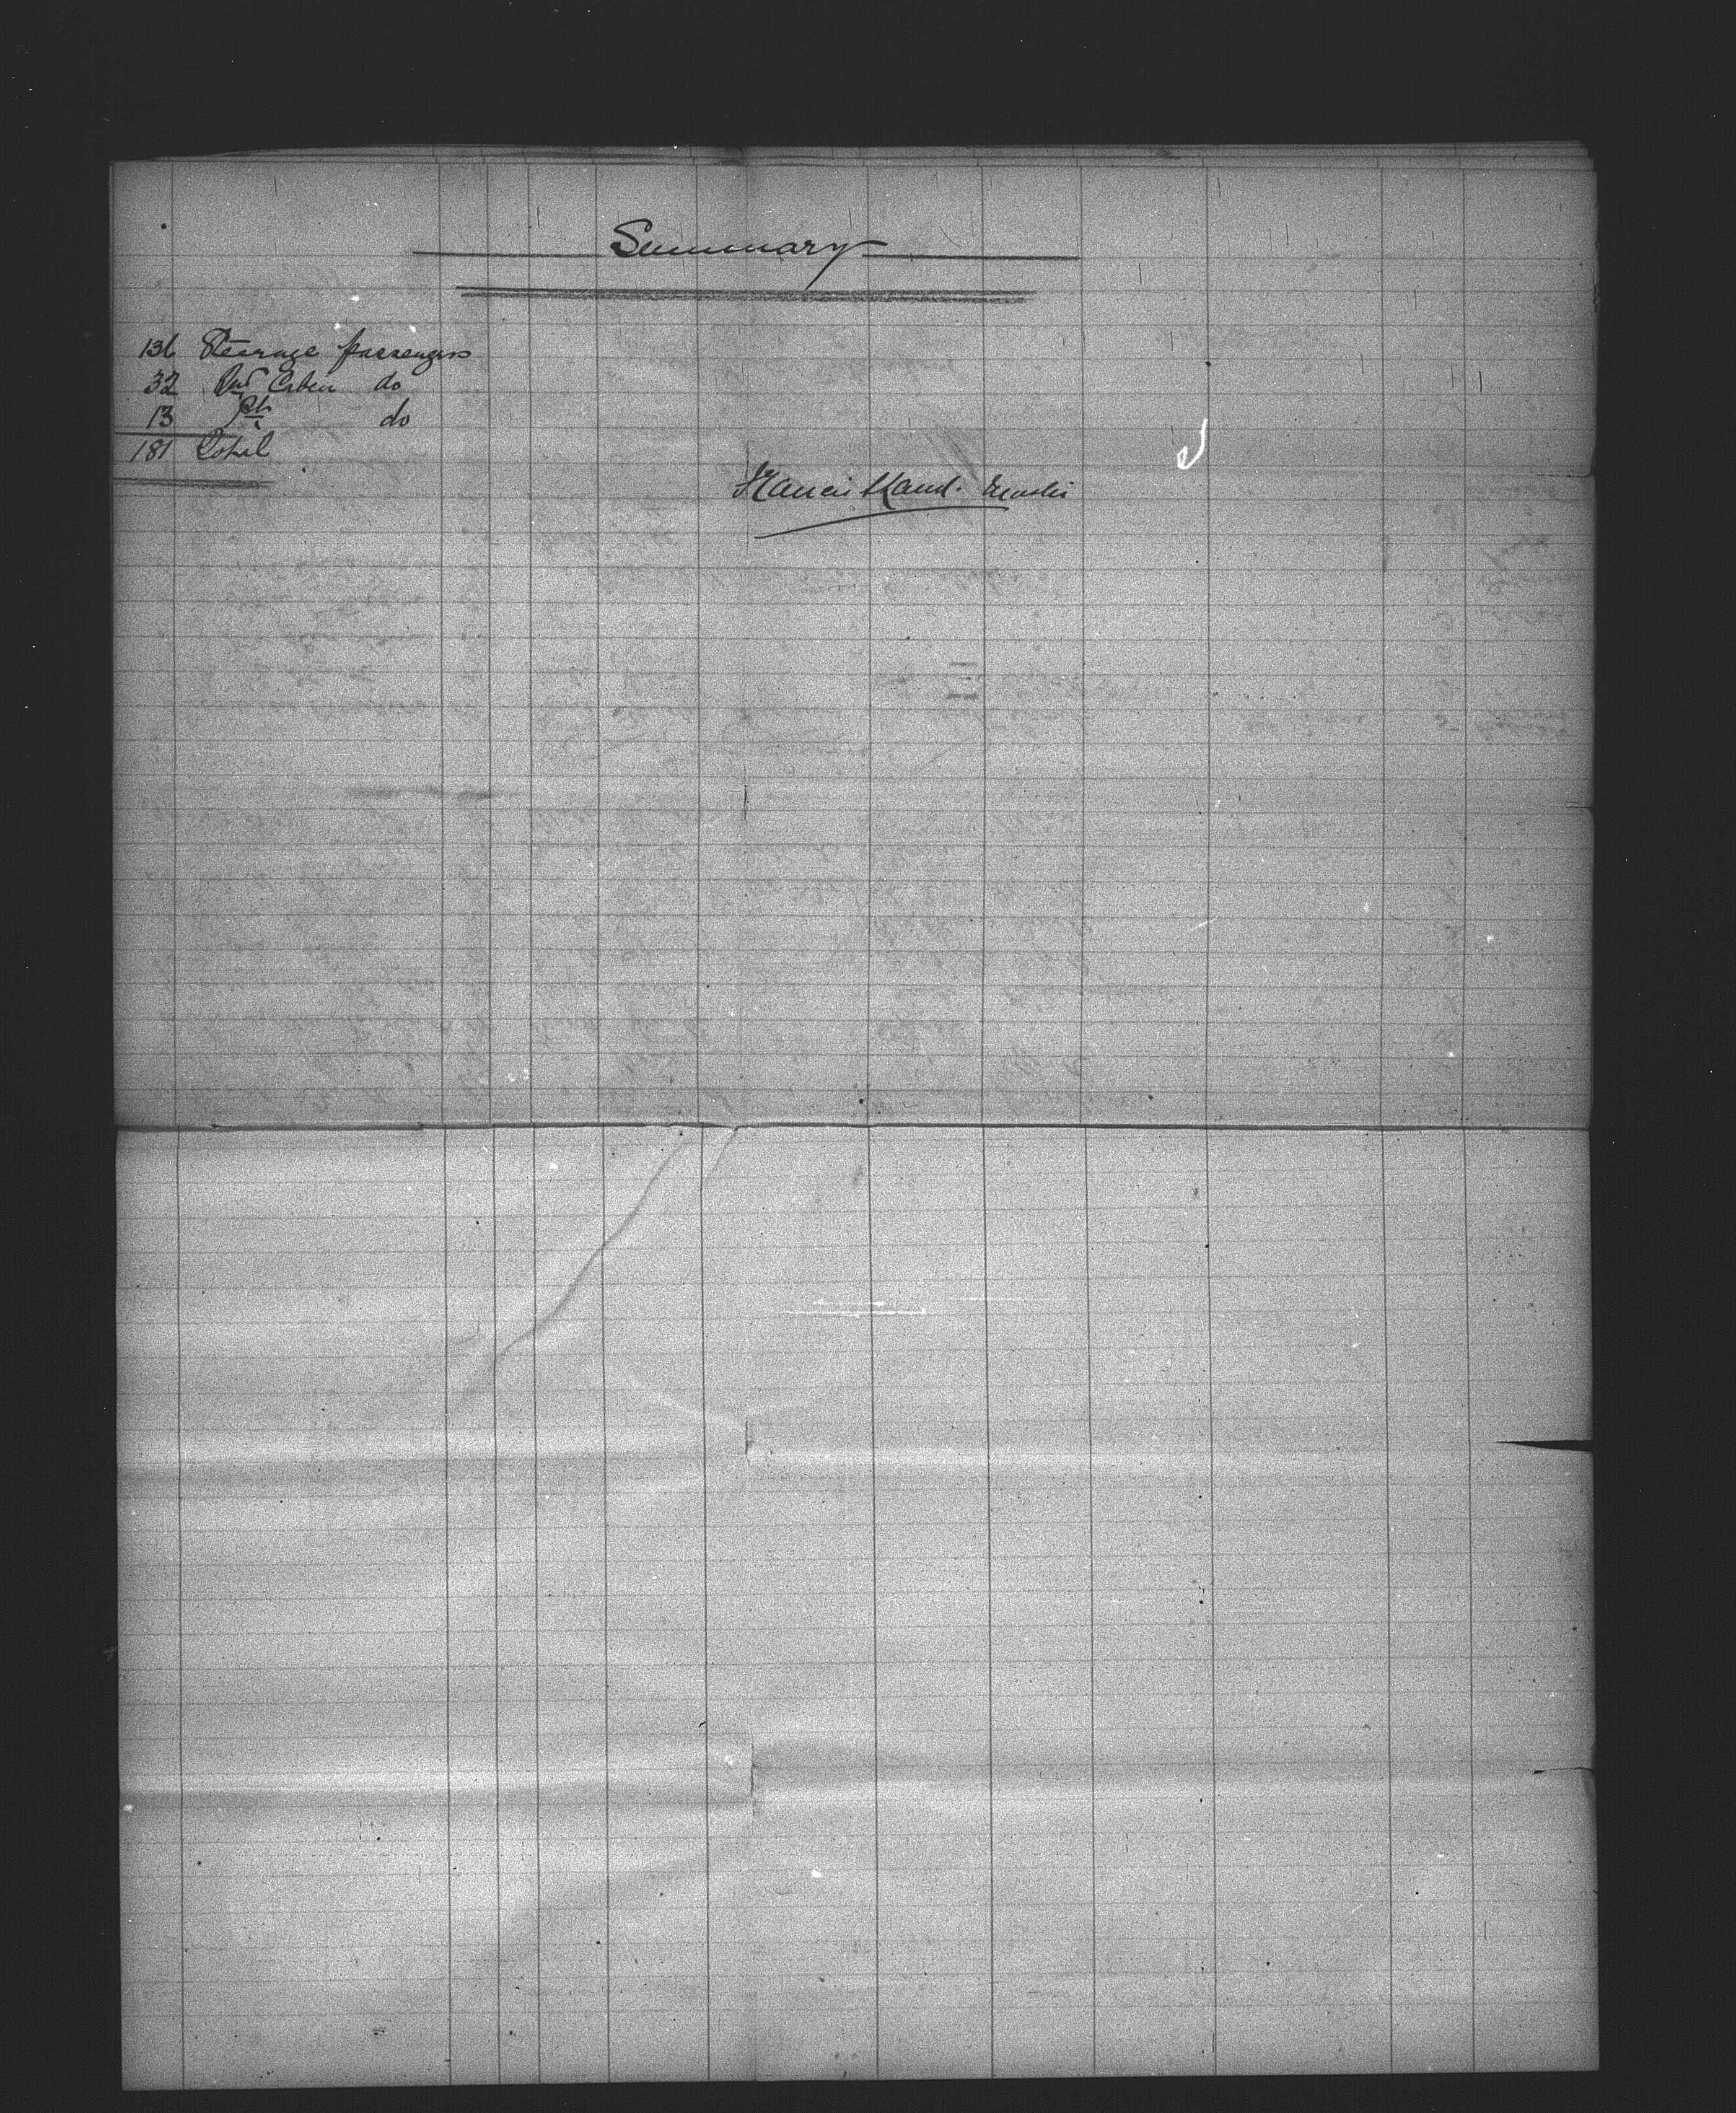 Summary
136 Steerage passengers
32 2nd Cabin do
13 1st do
181 Total
Francis Hand. Master